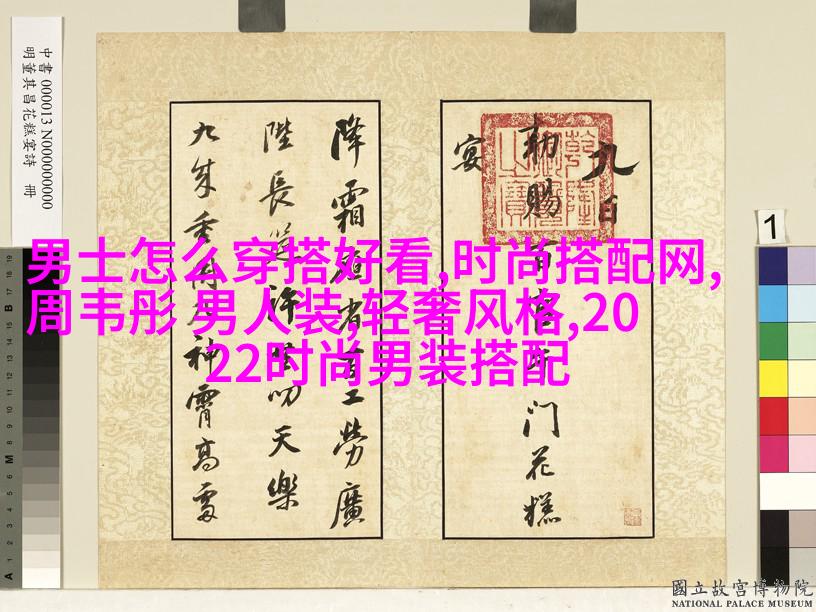 男士怎么穿搭好看,时尚搭配网,
周韦彤 男人装,轻奢风格,20
22时尚男装搭配
九日
勅賜百官午門花糕
宴
降霜 省 工勞廣
陛長筵許共叨天樂
九成重 神霄高處
中書 000013 N000000000
明董其昌花糕宴詩 冊
1
國立故宮博物院
NATIONAL PALACE MUSEUM